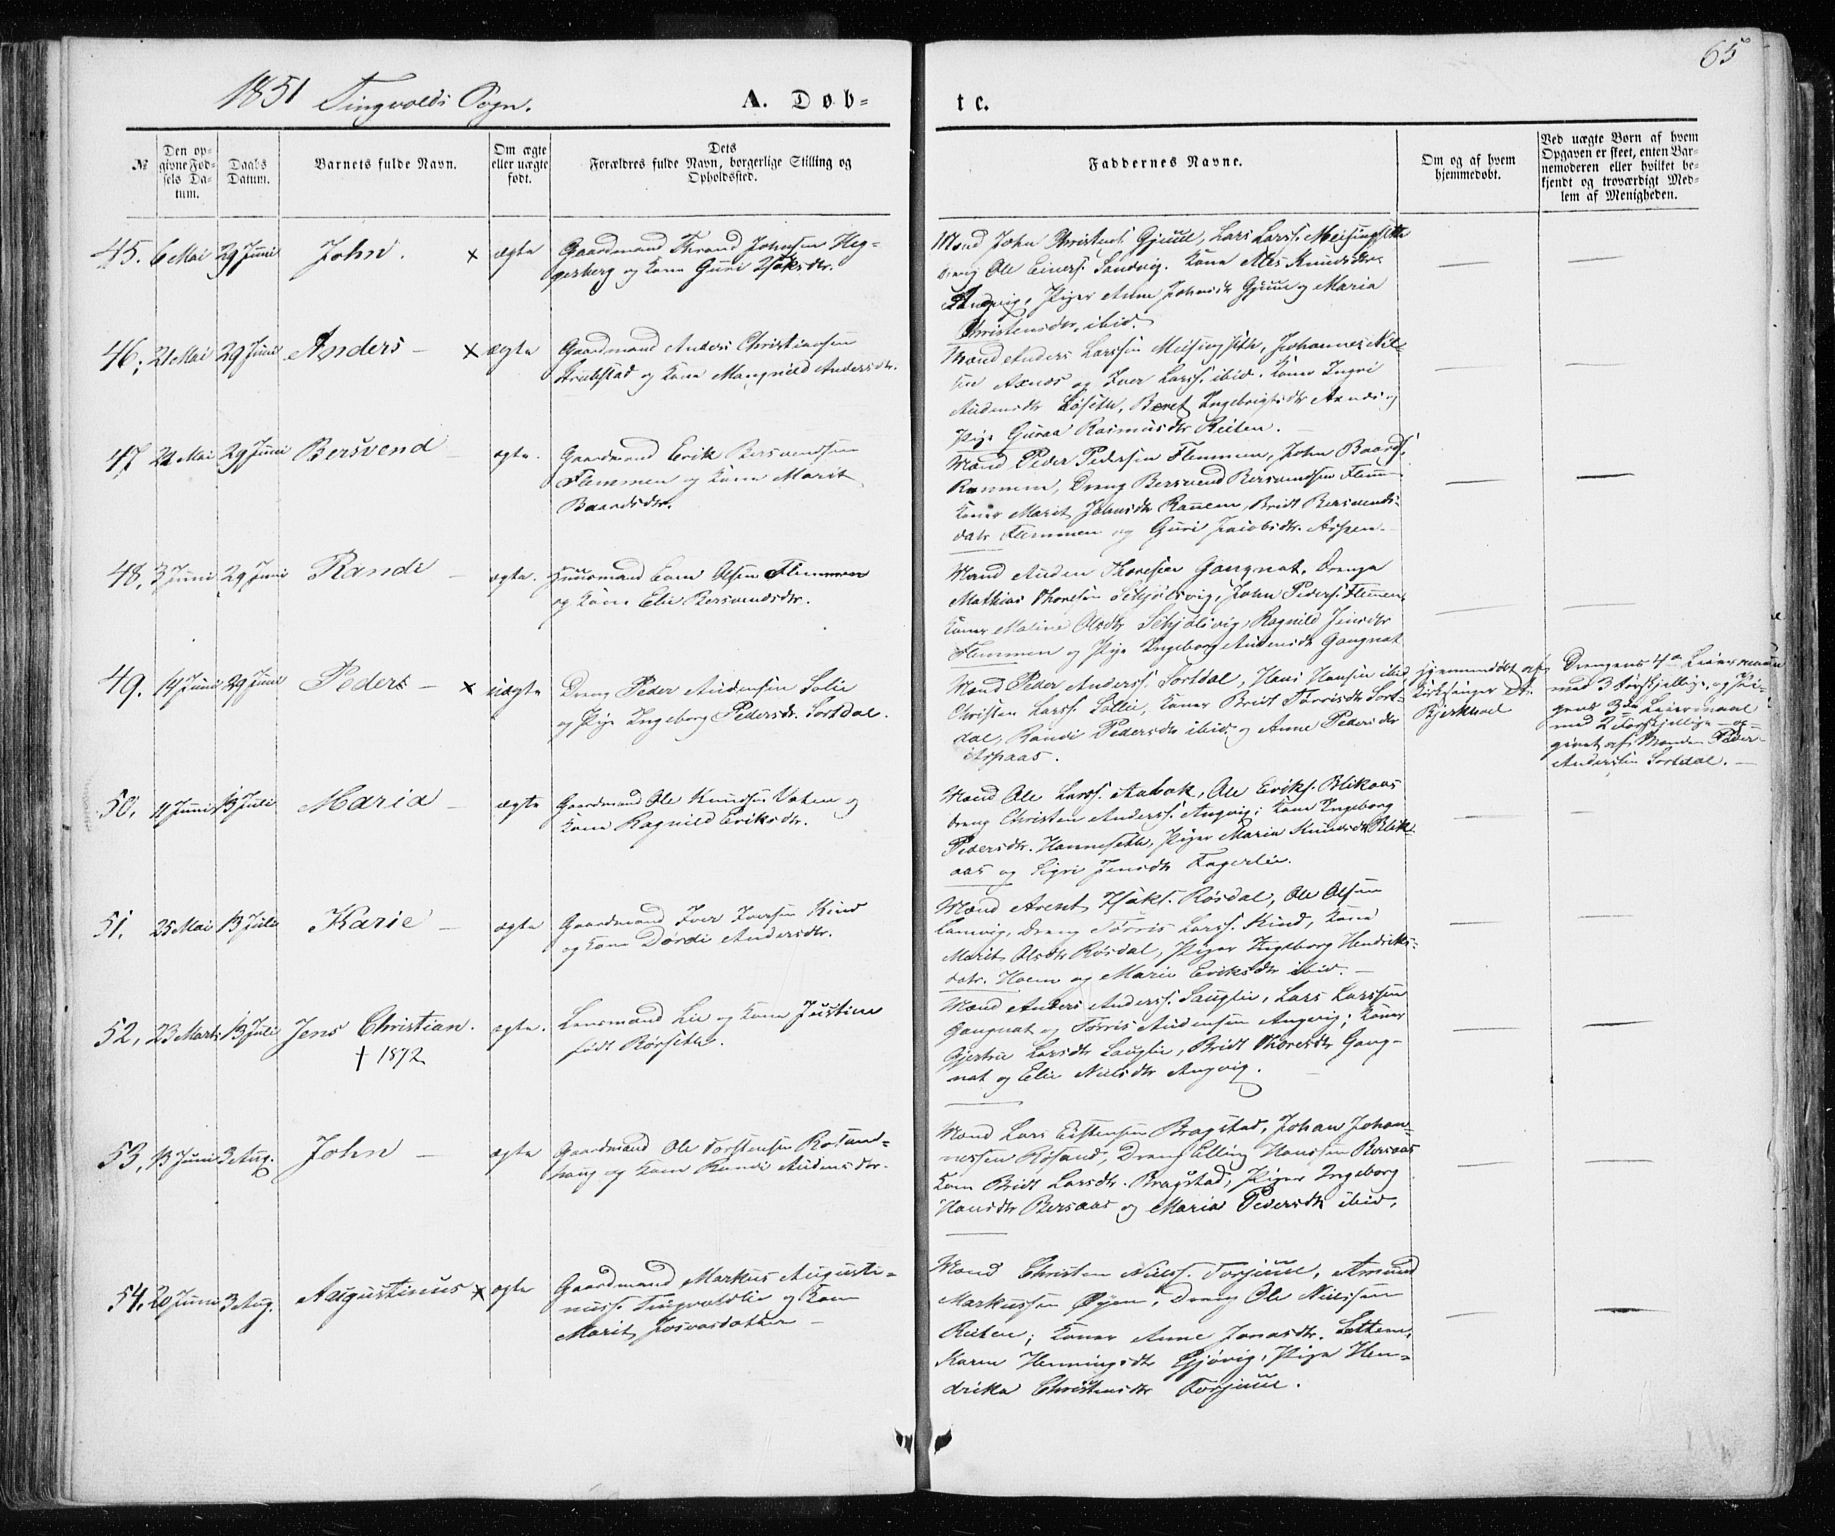 1851 Tingvolds Sogn.
A. Døb-
te.
65
№
Den op-
givne Fød-
sels Da-
tum.
Daabs
Datum.
Barnets fulde Navn.
Om ægte
eller uægte
født.
Dets
Forældres fulde Navn, borgerlige Stilling og
Opholdssted.
Faddernes Navne.
Om og af hvem
hjemmedøbt.
Ved uægte Børn af hvem
Opgaven er skeet, enten Bar-
nemoderen eller hvilket be-
kjendt og troværdigt Med-
lem af Menigheden.
45. 6 Mai 29 Juni John. × ægte
Gaardmand Thrond Johnsen Heg-
gesberg og Kone Guri Isaksdtr.
Mænd John Christens. Gjüül, Lars Larss. Meisingseth
Dreng Ole Einers. Sandvig. Kone Ales Knudsdtr
Angvig, Piger Anne Johnsdtr Gjüül og Maria
Christensdtr. ibid.
46. 21 Mai 29 Juni Anders – × ægte
Gaardmand Anders Christiansen
og Kone Mangnild Andersdtr.
Mænd Anders Larssen Meisingseth, Johannes Nil-
sen Axnæs og Iver Larss. ibid. Koner Ingri
Audensdtr Løseth, Beret Ingebrigtsdtr Axnæs og
Pige Guraa Rasmusdtr Reiten.
47 22 Mai 29 Juni Bersvend – ægte.
Gaardmand Erik Bersvendsen
Flemmen og Kone Marit
Baardsdtr.
Mænd Peder Pedersen Flemmen, John Baards.
Ranem, Dreng Bersvend Bersvendsen Flem-
Koner Marit Johnsdtr Ranem, Bridt Bersvends-
datr. Flemmen og Guri Jacobsdtr. Aspen.
48, 3 Juni 29 Juni Randi – ægte.
Huusmand Olsen Flemmen
og Kone Eli Bersvendsdtr.
Mænd Auden Thoresen Gangnat, Drenge
Mathias Thoresen Schjølsvig, John Peders. Flemmen
Koner Maline Olsdtr Schjølsvig, Ragnild Jensdtr
Flemmen og Pige Ingeborg Audensdtr Gangnat
49. 14 Juni 29 Juni Peder – × uægte
Dreng Peder Audensen Solie
og Pige Ingeborg Pedersdtr. Sortdal.
Mænd Peder Anderss. Sortdal, Hans Hansen ibid
Christen Larss. Sollie, Koner Bridt Tørrisdtr Sort-
dal, Randi Pedersdtr ibid. og Anne Pedersdtr
Aspaas.
Hjemmedøbt af
Kirkesanger A.
Bjerknæs
Drengens 4de Leiermaal
med 3 forskjellige, og Pi-
gens 3die Leiermaal
med 2 forskjellige – op-
givet af Manden Peder
Anderssen Sortdal. –
50. 11 Juni 13 Juli Maria – ægte
Gaardmand Ole Knudsen Vaten og
Kone Ragnild Eriksdtr.
Mænd Ole Larss. Aabak, Ole Eriks. Blikaas
Dreng Christen Anderss. Angvig; Kone Ingeborg
Pedersdtr. Hanneseth, Piger Maria Knudsdtr Blik-
aas og Sigri Jensdtr Fagerlie.
51. 25 Mai 13 Juli Karie – ægte
Gaardmand Iver Iversen Kind
og Kone Dordi Andersdtr.
Mænd Arent Isaks. Røsdal, Ole Olsen
Dreng Tørris Larss. Kind, Kone
Marit Olsdtr Røsdal, Piger Ingeborg Hendriks-
datr. Hoem og Marie Eriksdtr ibid. –
52, 23 Marts 13 Juli Jens Christian. ægte.
† 1872
Lensmand Lie og Kone Justine
født Rørseth.
Mænd Anders Anderss. Sauglie, Lars Larssen
Gangnat og Tørris Audensen Angvig; Koner
Gjertru Larsdtr Sauglie, Bridt Thoresdtr Gang-
nat og Elie Nielsdtr Angvig.
53, 13 Juni 3 Aug. John – ægte
Gaardmand Ole Torstensen Rosand-
haug og Kone Randi Audensdtr.
Mænd Lars Eistensen Bragstad, Johan Johan-
nessen Røsand, Dreng Elling Hanssen Bersaas
Kone Bridt Larsdtr. Bragstad, Piger Ingeborg
Hansdtr Bersaas og Maria Pedersdtr ibid.
54, 20 Juni 3 Aug. Augustinus × ægte
Gaardmand Markus Augusti-
nuss. Tingvoldlie og Kone
Marit Josvasdatter –
Mænd Christen Nielss. Torjuul, Amund
Markussen Øyen, Dreng Ole Nielssen
Reiten; Koner Anne Jonasdtr. Settem,
Karen Henningsdtr Gjøvig, Pige Hen-
drika Christensdtr Torjuul.